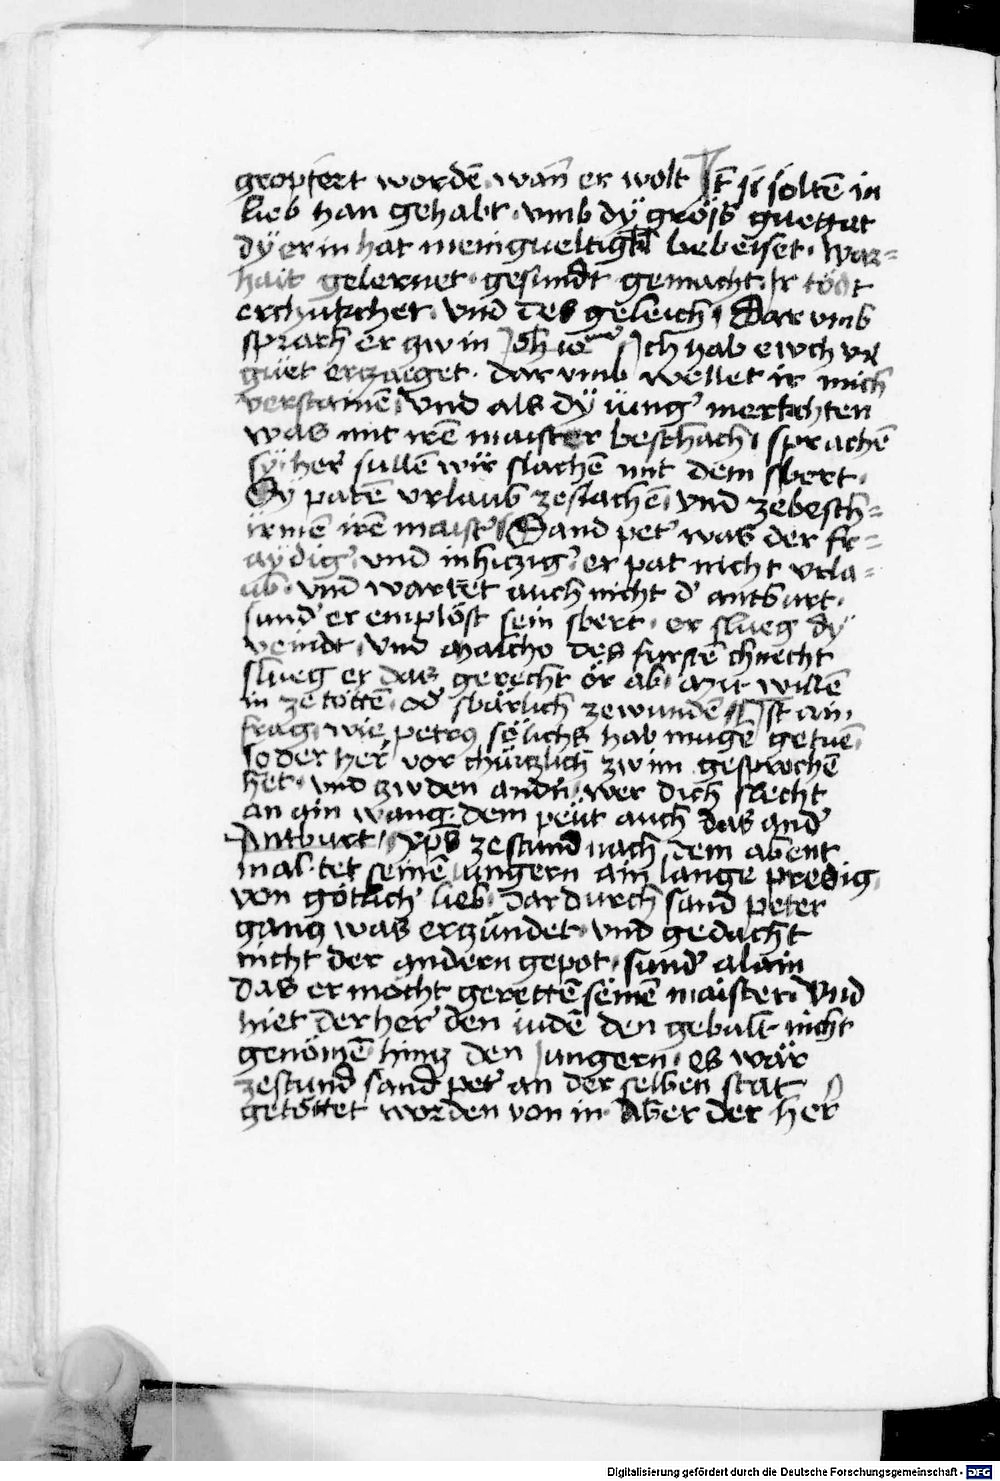 geopfert wordē wañ er wolt It̄ si soltē in
lieb han gehabt · vmb dÿ grös guettat
dÿ er in hat menigueltig beweiset · war=
hait gelernet · gesundt gemacht · Ir tödt
erchukchet · vnd des geleich · Dar vmb
sprach er zw in Ich hab ewch vil
guet erzaiget · dar vmb wellet ir mich
verstainē · Vnd als dÿ iung' merkchten
was mit irē maister beschach · sprachē
sÿ · her' sullē wir slachē mit dem sbert ·
Sÿ patē vrlaub zeslachē · vnd zebesch=
irmē irē maist' Sand pet' was der fr=
aÿdig' · vnd inhiczig' · er pat nicht vrla=
ub · vnd wartet auch nicht d' antburt ·
sund' er emplöst sein sbert · er slueg dÿ
veindt · Vnd malcho des furstē chnecht
slueg er das gerecht ör ab · mit willē
in ze töttē · od' sbärlich zewundē Ist ain
frag · wie petrus sölichs hab mugē getuē ·
so der her' vor chürtzlich zw im gesprochē
het · vnd zw den andn̄ · wer dich slecht
an ain wang · dem peüt auch das and'
Antburt · xp̄s zestund nach dem abent
mal · tet seinē iungern ain lange predig
von götlich' lieb · Dardurch sand peter
gancz was erzündet · vnd gedacht
nicht der andern gepot · sund' alain
das er möcht gerettē seinē maister · Vnd
hiet der her' den iudē den gebalt nicht
genömē hincz den iungern · es wär
zestund sand pet' an der selben stat
getöttet worden von in · Aber der her'
Digitalisierung gefördert durch die Deutsche Forschungsgemeinschaft - DFG